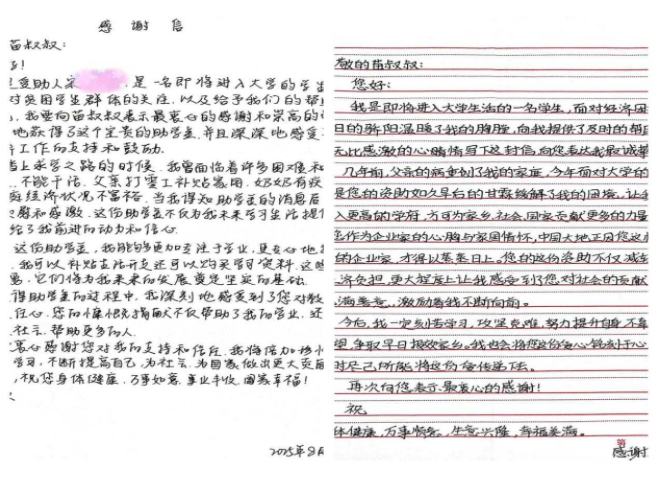 感 谢 信
苗叔叔：
受助人宋 ，是一名即将进入大学的学生
对贫困学生群体的关注，以及给予我们的帮
，我要向苗叔叔表示最衷心的感谢和崇高的
地获得了这个宝贵的助学金，并且深深地感受
工作的支持和鼓励。
当上求学之路的时候，我曾面临着许多困难和
不能干活，父亲打零工补贴家用，奶奶有疾
庭经济状况不富裕，当我得知助学金的消息后
慰和感激，这份助学金不仅为我未来学习生活提
给了我前进的动力和信心。
这份助学金，我能够更加专注于学业，更安心地
我可以补贴生活开支还可以购买学习资料，这
它们将为我未来的发展奠定坚实的基础。
得助学金的过程中，我深刻地感受到了您对教
任心，您的慷慨捐献不仅帮助了我的学业，还
社会，帮助更多的人。
衷心感谢您对我的支持和信任，我将倍加珍
学习，不断提高自己，为社会，为国家做出更大贡献
，祝您身体健康，万事如意，事业丰收，阖家幸福！
2025年8月
敬的苗叔叔：
您好：
我是即将进入大学生活的一名学生，面对经济困
日的骄阳温暖了我的胸膛，向我提供了及时的帮
无比感激的心情写下这封信，向您表达我最诚挚
几年前，父亲的病重到了我的家庭，今年面对大学的
是您的资助如久旱后的甘霖缓解了我的困境，让
入更高的学府，方可为家乡，社会，国家贡献更多的力量
您作为企业家的心胸与家国情怀，中国大地正因您这
的企业家，才得以蒸蒸日上。您的这份资助不仅减
济负担，更大程度上让我感受到了您对社会的贡献
满善意，激励着我不断向前。
今后，我一定刻苦学习，攻坚克难，努力提升自身，不辜
望，争取早日报效家乡。我也会将您这份爱心铭刻于心
时尽己所能将这份爱传递下去。
再次向您表示最衷心的感谢！
祝
体健康，万事顺意，生意兴隆，幸福美满。
感谢